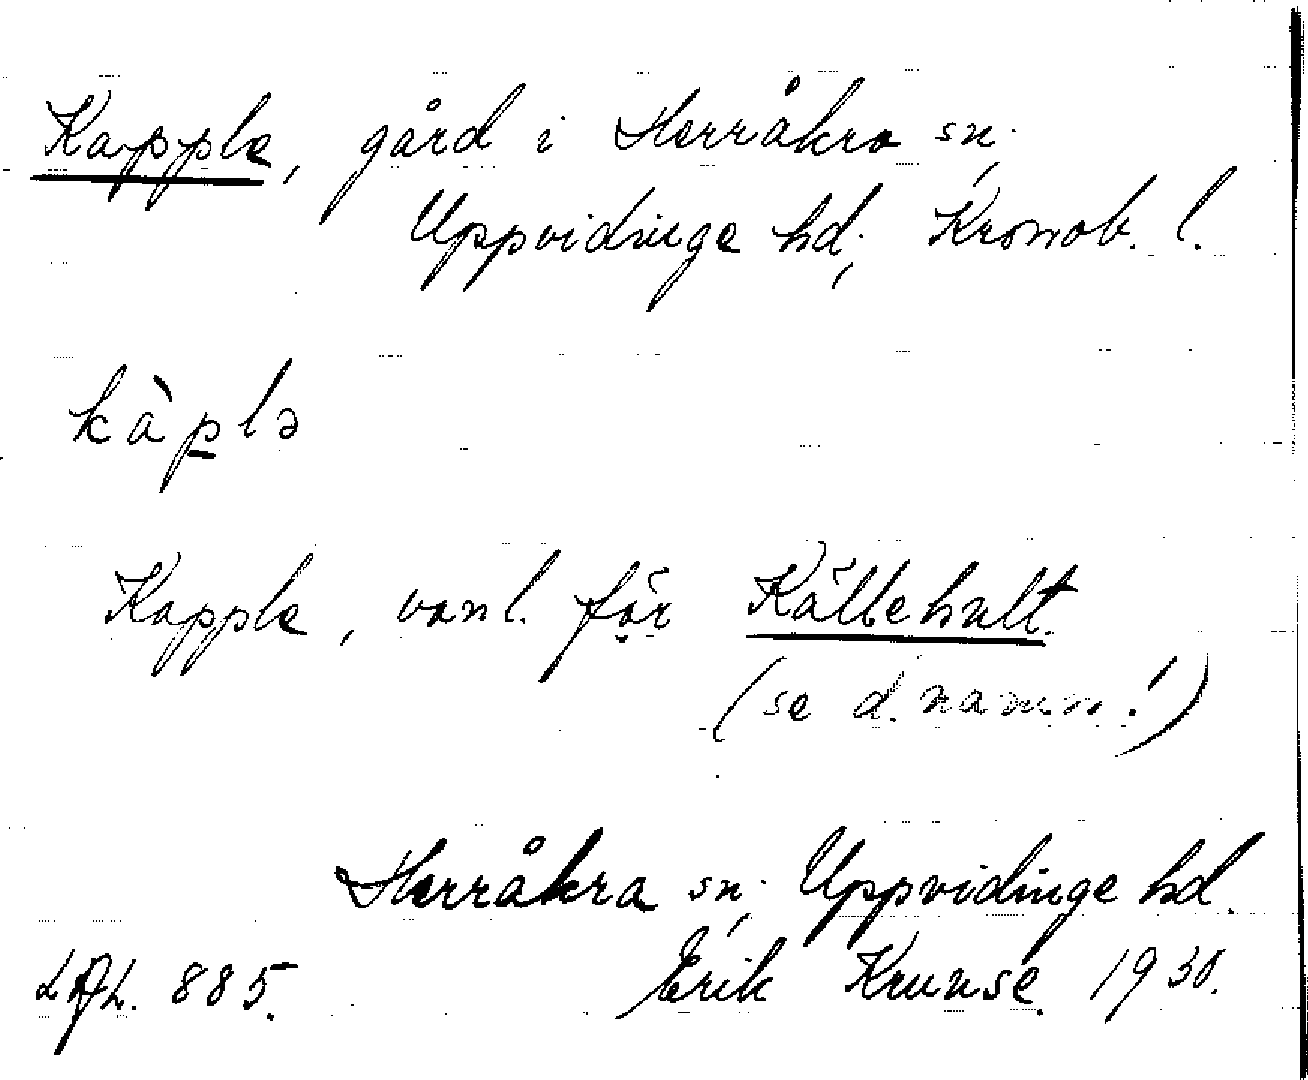 Kapple, gård i Herråkra sn.,
Uppvidinge hd., Kronob. l.
kàplə
Kapple, vanl. för Källehult.
(se d. namn!)
Herråkra sn., Uppvidinge hd.
885. Erik Krunse. 1930.